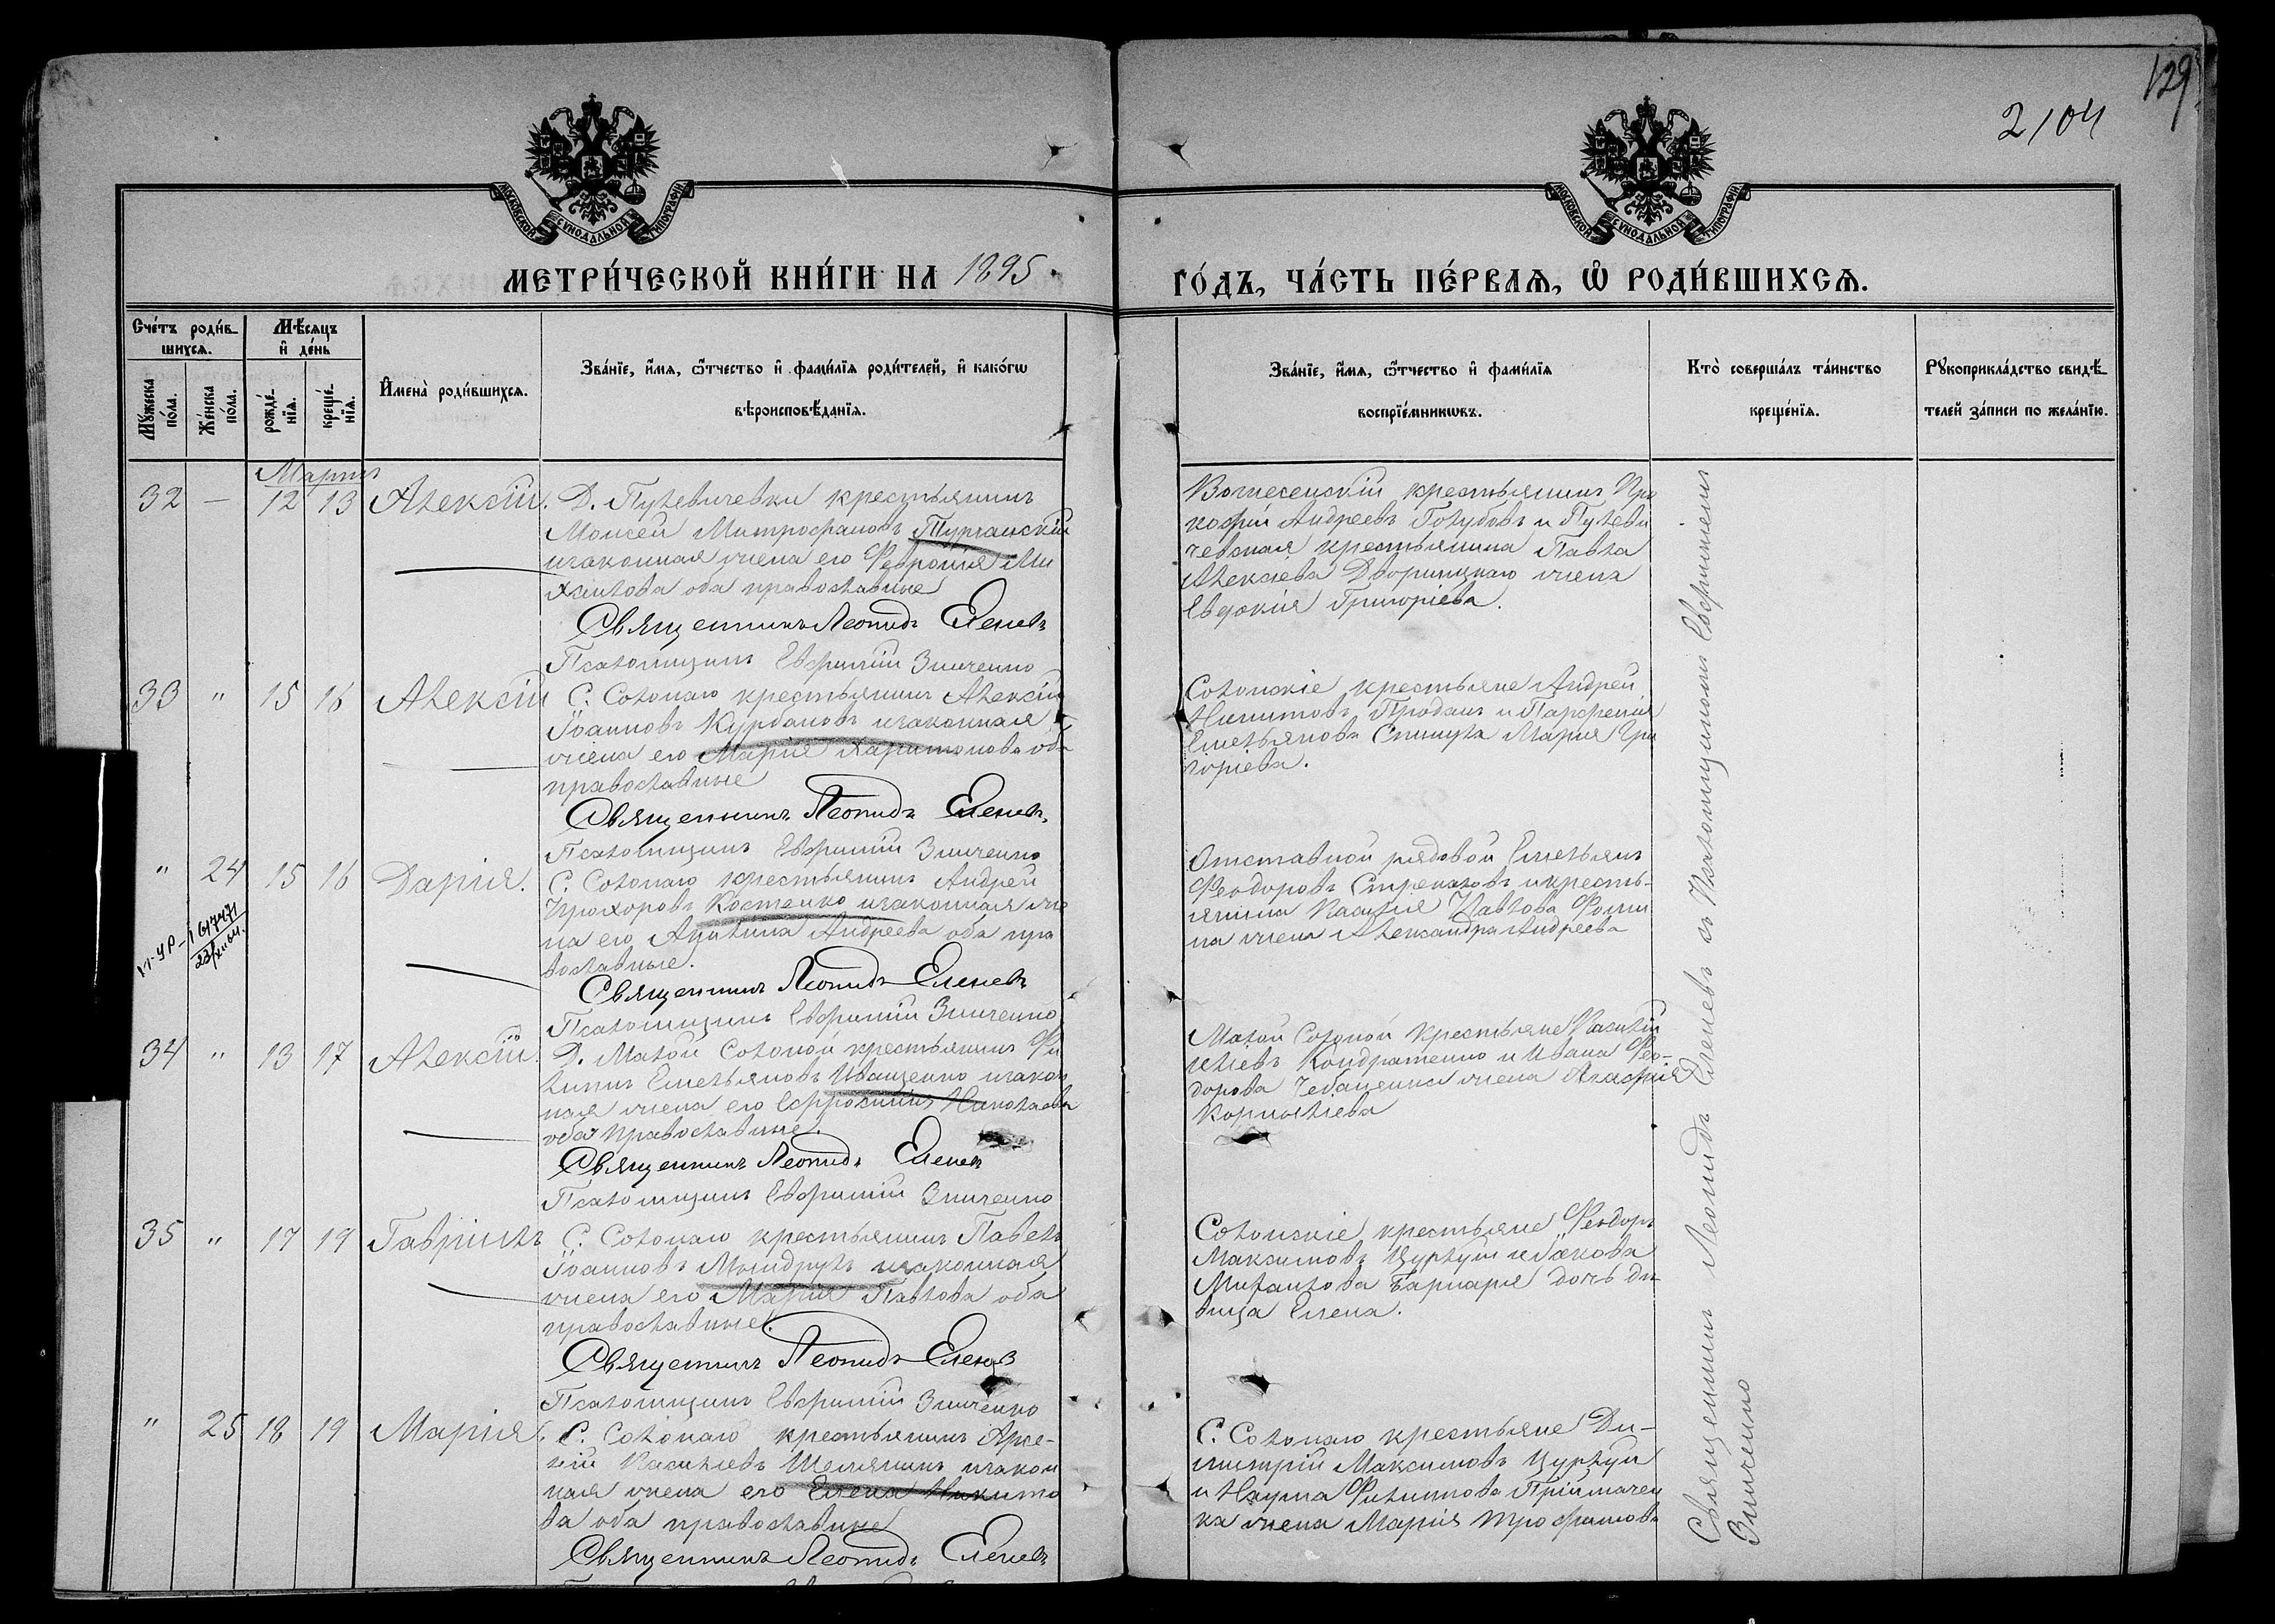 129
2104
МОСКОВСКОЙ СѴНОДАЛЬНОЙ ТИПОГРАФІИ
МОСКОВСКОЙ СѴНОДАЛЬНОЙ ТИПОГРАФІИ
МЕТРИ́ЧЕСКОЙ КНИ́ГИ НА 1895
ГО́ДЪ, ЧА́СТЬ ПЕ́РВАѦ, Ѡ҆ РОДИ́ВШИХСѦ.
Сче́тъ роди́в-
шихсѧ.
Мѣ́сѧцъ
и҆ де́нь
Мꙋ́жеска
по́ла.
Же́нска
по́ла.
рожде́-
нїѧ.
креще́-
нїѧ.
И҆мена̀ роди́вшихсѧ.
Зва́нїе, и҆́мѧ, ѻ҆́тчество и҆ фами́лїѧ роди́телей, и҆ како́гѡ
вѣроисповѣ́данїѧ.
Зва́нїе, и҆́мѧ, ѻ҆́тчество и҆ фами́лїѧ
воспрїе́мникѡвъ.
Кто̀ соверша́лъ та́инство
креще́нїѧ.
Рꙋкоприкла́дство свидѣ́-
телей за́писи по жела́нїю.
Мартъ
32 — 12 13 Алексій. Д. Пулевичевки крестьянинъ
Моисей Митрофановъ
изаконная жена его Феврошія Ми
хаилова оба православные
Священникъ Леонидъ Еленевъ
Псаломщикъ Евфимій Зинченко
Вознесенскій крестьянинъ Про
кофій Андреевъ Голубовъ и Пулеви
чевская крестьянина Павла
Алексѣева Дворницкаго жена
Евдокія Григоріева.
33 " 15 16 Алексій С. Солонаго крестьянинъ Алексій
Іоанновъ Курбановъ изаконная
жена его Марія Харитонова оба
православные
Священникъ Леонидъ Еленевъ
Псаломщикъ Евфимій Зинченко
Солонскіе крестьяне Андрей
Никитовъ Проданъ и Парфенія
Емельянова Спинула Марія Гри
горіева.
" 24 15 16 Дарія. С. Солонаго крестьянинъ Андрей
Прохоровъ Костенко изаконная же
на его Акилина Андреева оба пра
вославные.
Священникъ Леонидъ Еленевъ
Псаломщикъ Евфимій Зинченко
Отставной рядовой Емельянъ
Феодоровъ Стрекаловъ икресть-
янина Василія Павлова Фоми
на жена Александра Андреева
34 " 13 17 Алексій. Д. Малой Солоной крестьянинъ Фи
липпъ Емельяновъ Иващенко изакон
ная жена его Евфросинія Николаева
оба православные.
Священникъ Леонидъ Еленевъ
Псаломщикъ Евфимій Зинченко
Малой Солоной крестьяне Василій
Кондратенко и Ивана Фео-
дорова Чебаненка жена Агафія
Корнилиева
35 " 17 19 Гавріилъ С. Солонаго крестьянинъ Павелъ
Іоанновъ Мындрулъ изаконная
жена его Марія Павлова оба
православные.
Священникъ Леонидъ Еленевъ
Псаломщикъ Евфимій Зинченко
Солонскіе крестьяне Феодоръ
Максимовъ Цуркум иЯкова
Михаилова Барнаря дочь дѣ
вица Елена.
" 25 18 19 Марія. С. Солонаго крестьянинъ Арсе-
ній Василіевъ Шемякинъ изакон
ная жена его Елена Никито
ва оба православные
Священникъ Леонидъ Еленевъ
С. Солонаго крестьяне Ди-
митрій Максимовъ Цуркум
и Наума Филиппова Пріймачен
ка жена Марія Трофимова
Священникъ Леонидъ Еленевъ съ Псаломщикомъ Евфиміемъ
Зинченко